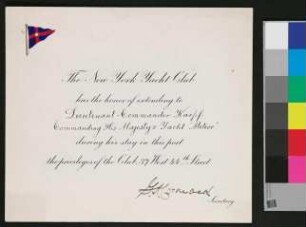 The New York Yacht Club
has the honor of extending to
Lieutenant Commander Karpf
Commanding His Majesty's Yacht "Meteor"
during his stay in this port
the privileges of the Club, 37 West 44th Street
Secretary